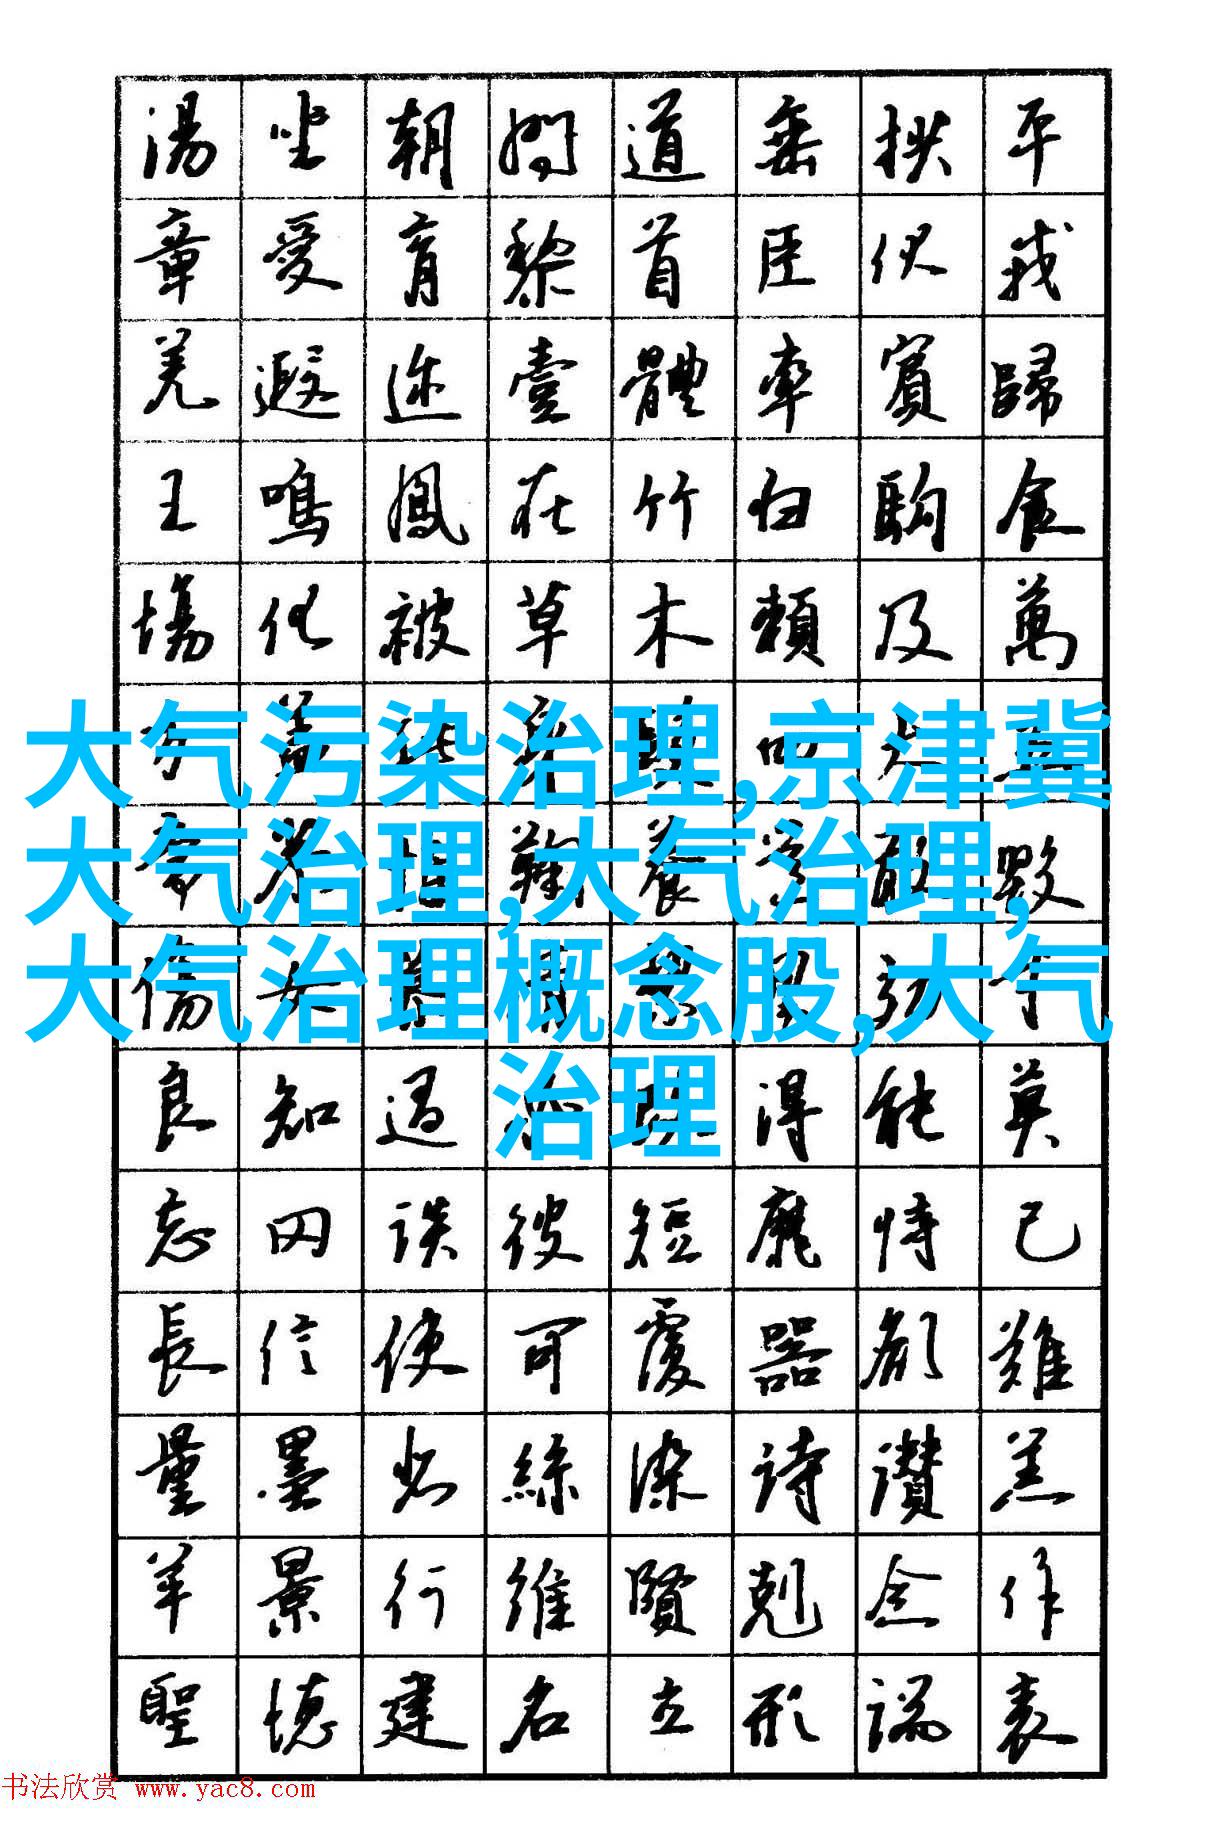 湯坐朝問道垂拱平
章愛育黎首臣伏戎
羌遐迩壹體率賓歸
王鳴鳳在竹白駒食
場化被草木賴及萬
大气污染治理,京津冀
大气治理,大气治理,
大气治理概念股,大气
治理
方
常鞠養敢毀
傷女
良知過得能莫
忘罔談彼短靡恃己
長信使可覆器欲難
量墨悲絲染詩讚羔
羊景行維賢剋念作
聖德建名立形端表
书法欣赏 www.yac8.com